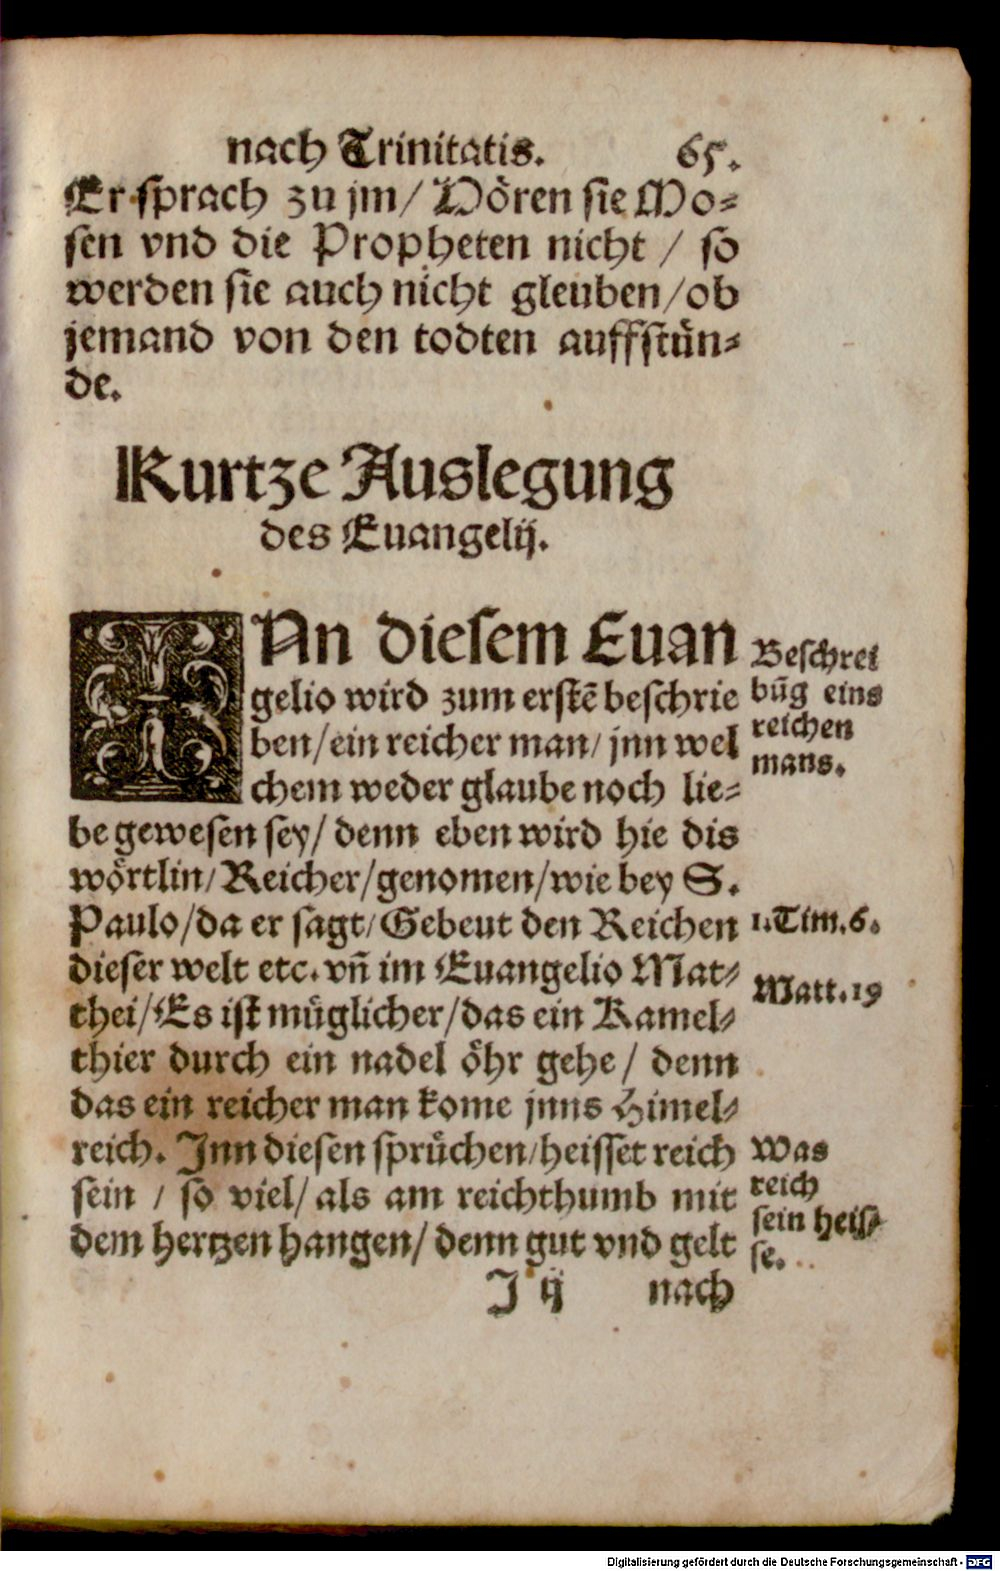 nach Trinitatis. 65.
Er sprach zu jm/ Hören sie Mo⸗
sen vnd die Propheten nicht / so
werden sie auch nicht gleuben/ob
jemand von den todten auffstün⸗
de.
Kurtze Auslegung
des Euangelij.
IAn diesem Euan
gelio wird zum erstē beschrie
ben/ein reicher man/ jnn wel
chem weder glaube noch lie⸗
be gewesen sey/ denn eben wird hie dis
wörtlin/Reicher/genomen/wie bey S.
Paulo/da er sagt/Gebeut den Reichen
dieser welt etc. vñ im Euangelio Mat⸗
thei/Es ist müglicher/das ein Kamel⸗
thier durch ein nadel öhr gehe / denn
das ein reicher man kome jnns Himel⸗
reich. Jnn diesen sprüchen/heisset reich
sein / so viel/ als am reichthumb mit
dem hertzen hangen/ denn gut vnd gelt
J ij nach
Beschrei
būg eins
reichen
mans.
1.Tim.6.
Matt.19
Was
reich
sein heis⸗
se.
Digitalisierung gefördert durch die Deutsche Forschungsgemeinschaft - DFG